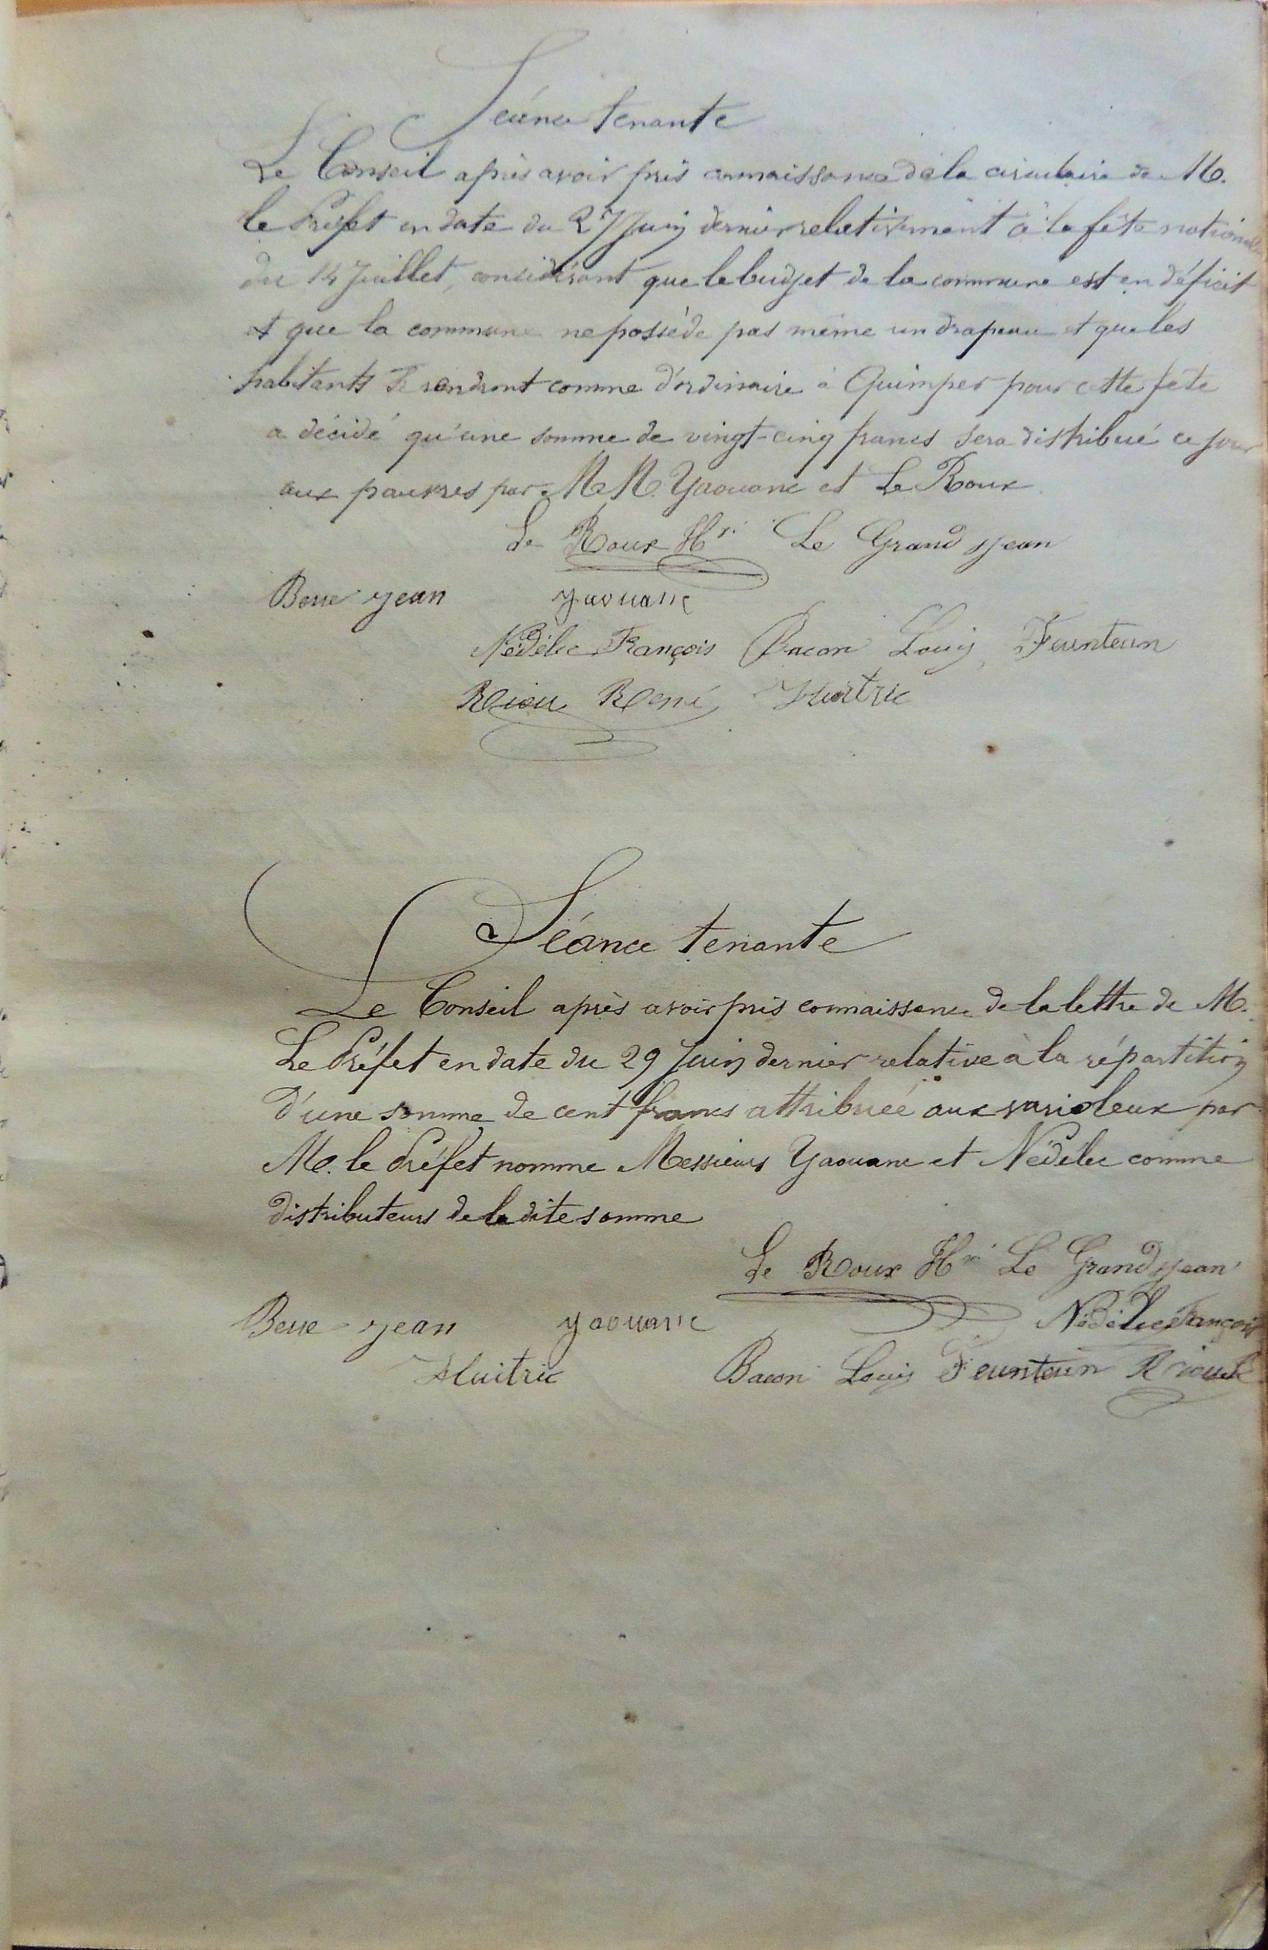 Séance tenante
Le Conseil après avoir pris connaissance de la circulaire de M.
le Préfet en date du 27 Juin dernier relativement à la fête nationale
du 14 Juillet, considérant que le budget de la commune est en déficit
et que la commune ne possède pas même un drapeau et que les
habitants se rendront comme d'ordinaire à Quimper pour cette fête
a décidé qu'une somme de vingt-cinq francs sera distribué ce jour
aux pauvres par M.M. Yaouanc et Le Roux
Le Roux Hri Le Grand Jean
Berre Jean Yaouanc
Nédélec François Bacon Louis Feunteun
Riou René Huitric
Séance tenante
Le Conseil après avoir pris connaissance de la lettre de M.
Le Préfet en date du 29 Juin dernier relative à la répartition
d'une somme de cent francs attribuée aux varioleux par
M. le Préfet nomme Messieurs Yaouanc et Nédélec comme
distributeurs de la dite somme
Le Roux Hri Le Grand Jean
Berre Jean Yaouanc Nédélec François
Huitric Bacon Louis Feunteun Riou R